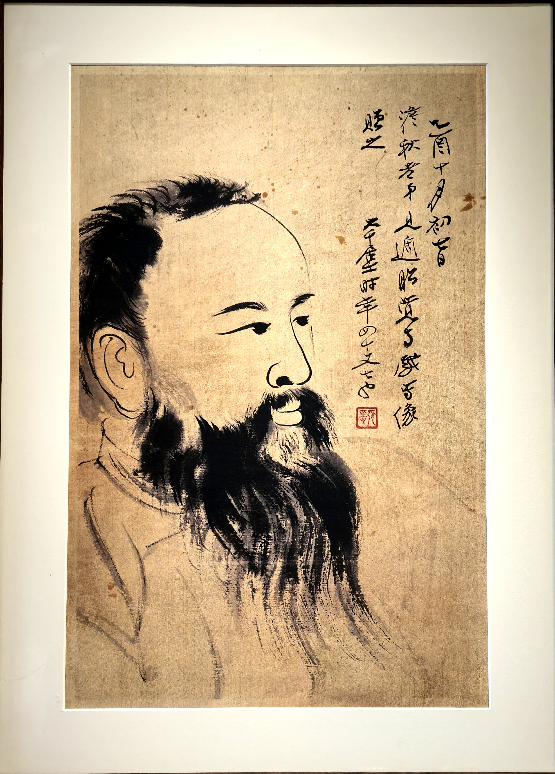 乙酉十月初
澹秋老弟見過昭覺寺戲寫像
贈之 大千居士時年四十又七也